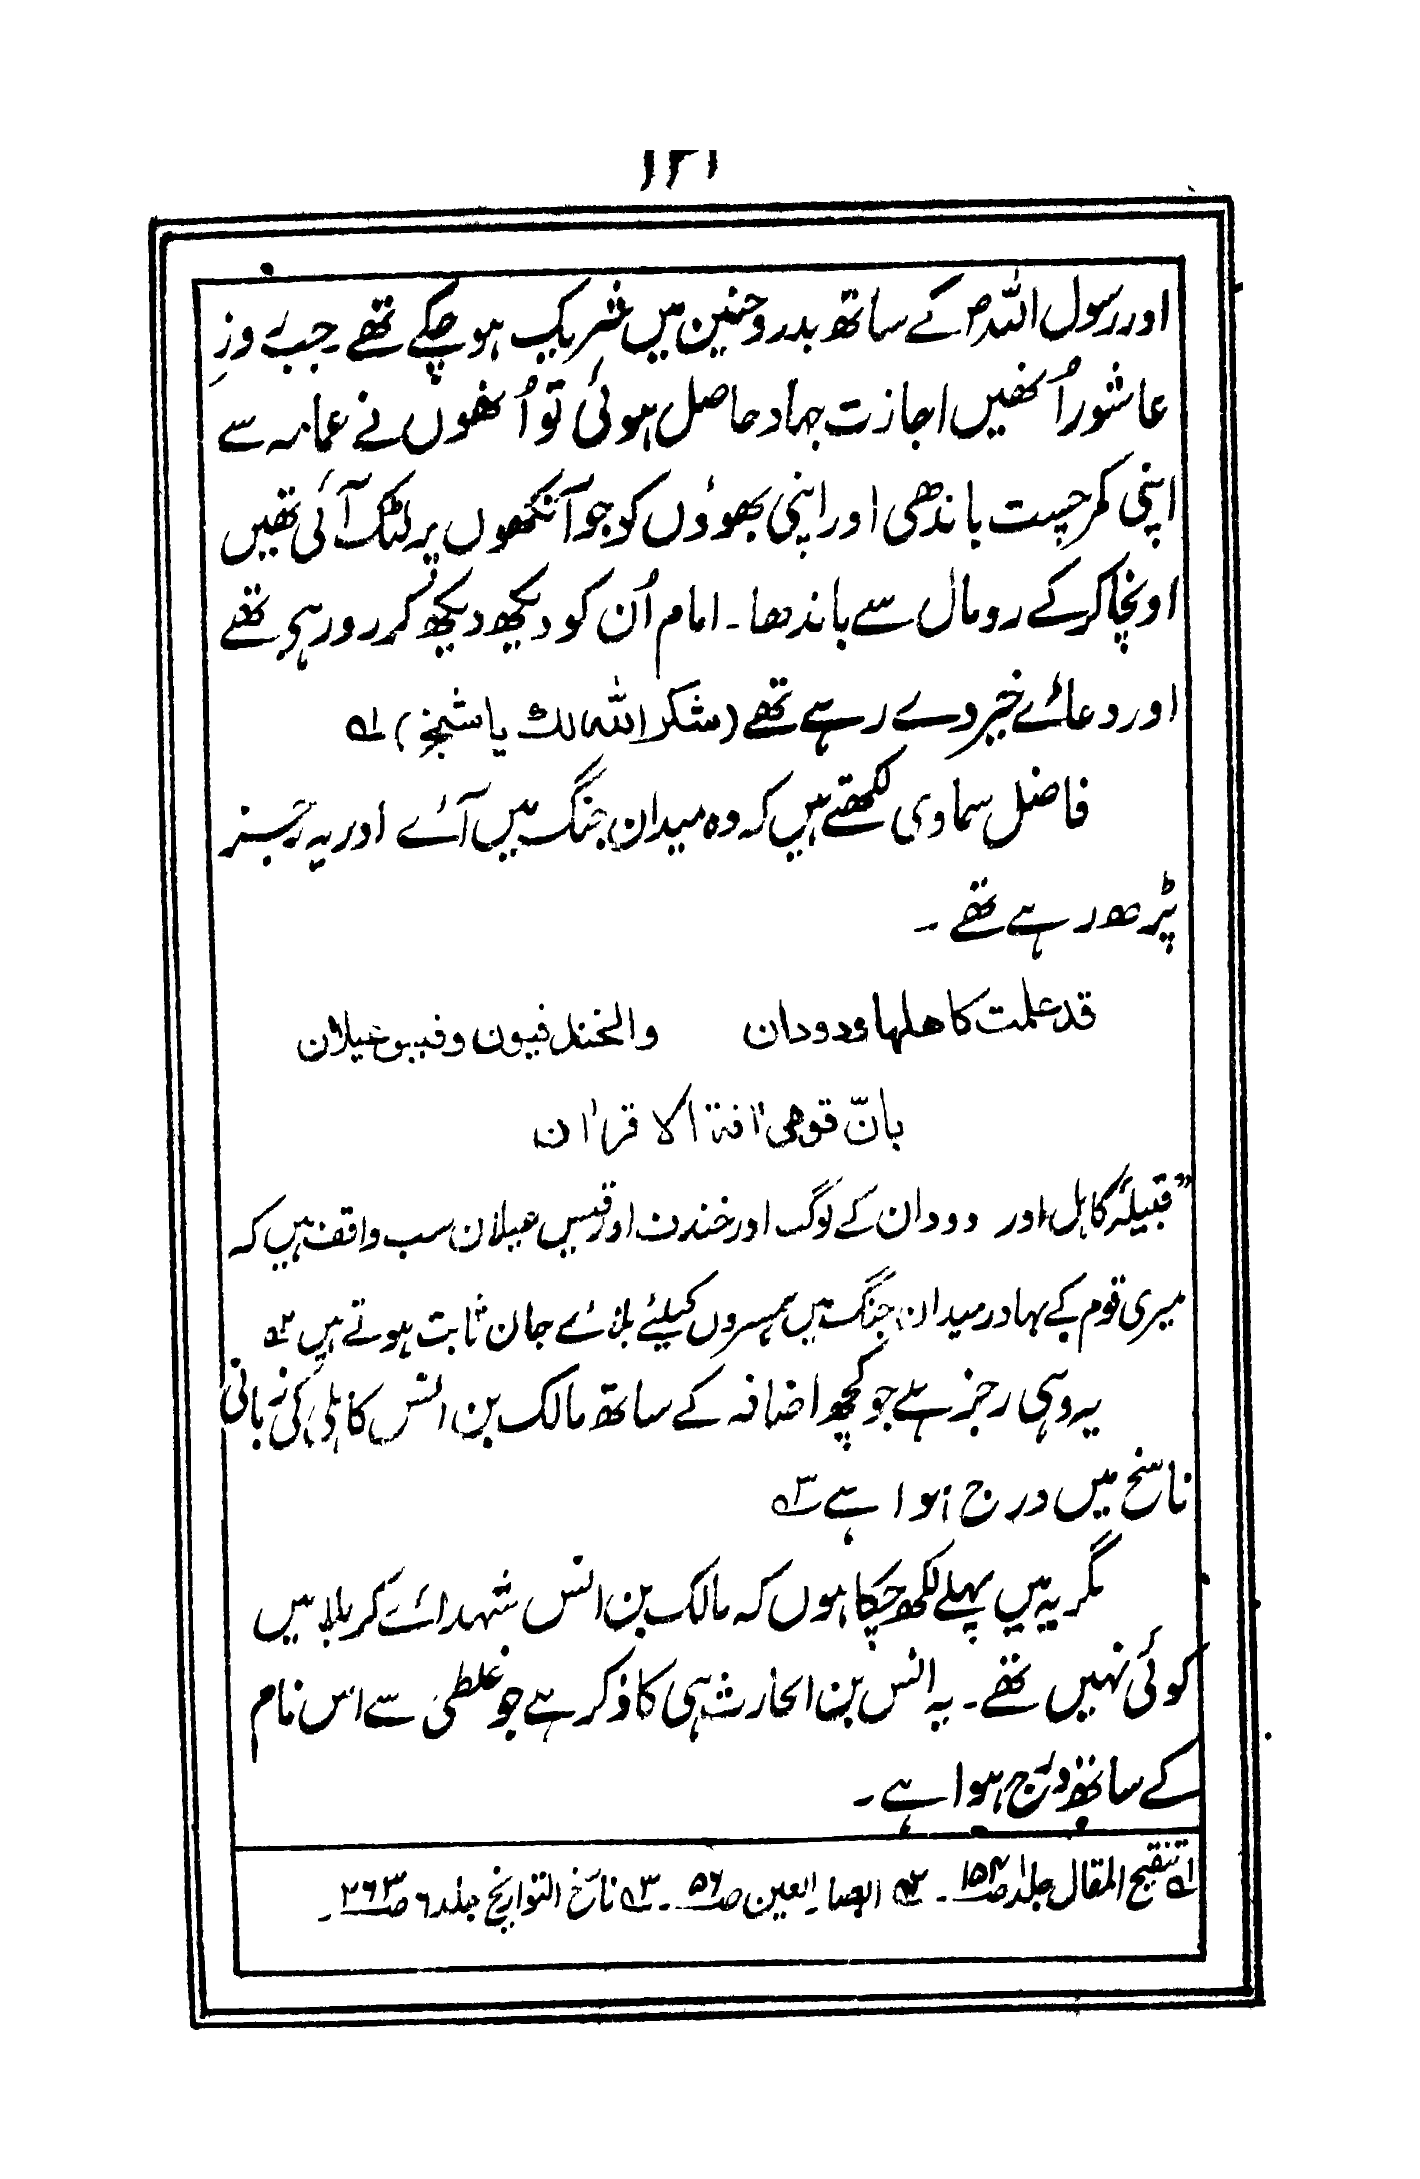 ۱۲۱
اور رسول اللہؐ کے ساتھ بدر و حنین میں شریک ہو چکے تھے۔ جب روزِ
عاشور اُنھیں اجازت جہاد حاصل ہوئی تو اُنھوں نے عمامہ سے
اپنی کمر چست باندھی اور اپنی بھوؤں کو جو آنکھوں پر لٹک آئی تھیں
اونچا کر کے رومال سے باندھا۔ امام اُن کو دیکھ دیکھ کر رو رہے تھے
اور دعائے خیر دے رہے تھے (شکر اللہ لک یا شیخ) ؎۱
فاضل سماوی لکھتے ہیں کہ وہ میدان جنگ میں آئے اور یہ رجز
پڑھ رہے تھے۔
قد علمت کاھلہا ودودان والخندفیون وقیس عیلان
بانّ قومی آفۃ الاقران
”قبیلۂ کاہل اور دودان کے لوگ اور خندف اور قیس عیلان سب واقف ہیں کہ
میری قوم کے بہادر میدان جنگ میں ہمسروں کیلئے بلائے جان ثابت ہوتے ہیں ؎۲
یہ وہی رجز ہے جو کچھ اضافہ کے ساتھ مالک بن انس کاہلی کی زبانی
ناسخ میں درج ہوا ہے ؎۳
مگر یہ میں پہلے لکھ چکا ہوں کہ مالک بن انس شہدائے کربلا میں
کوئی نہیں تھے۔ یہ انس بن الحارث ہی کا ذکر ہے جو غلطی سے اس نام
کے ساتھ درج ہوا ہے۔
؎۱ تنقیح المقال جلد۱ ص۱۵۴۔ ؎۲ ابصار العین ص۵۶۔ ؎۳ ناسخ التواریخ جلد ۶ ص۲۶۳۔